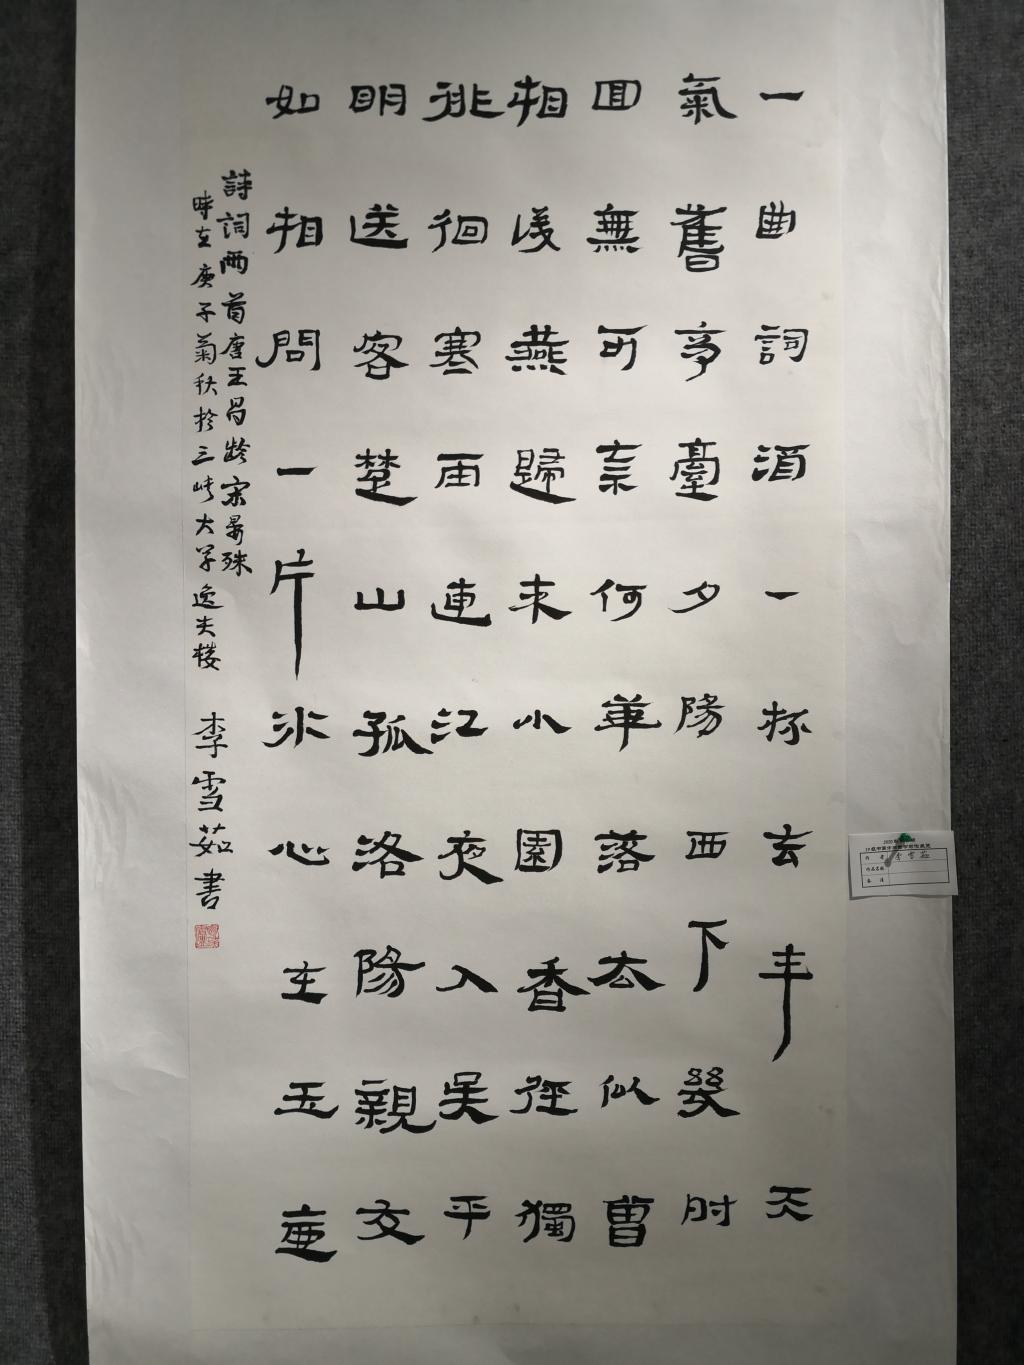 一曲詞酒一杯去年天
氣舊亭臺夕陽西下幾時
回無可奈何華落去似曾
相識燕歸来小園香徑獨
徘徊寒雨連江夜入吳平
明送客楚山孤洛陽親友
如相問一片冰心在玉壺
詩詞兩首唐王昌齡宋晏殊
時在庚子菊秋於三峽大学逸夫楼 李雪茹書
作者 李雪茹
作品名称
备注